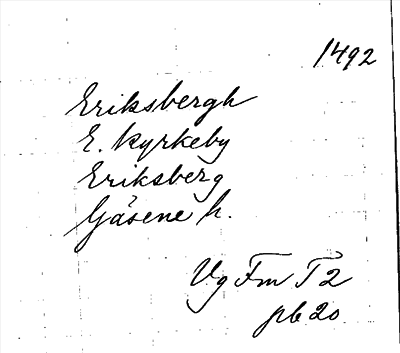 1492
Eriksbergh
E. kyrkeby
Eriksberg
Gäsene h.
Vg Fm T 2
pb 20